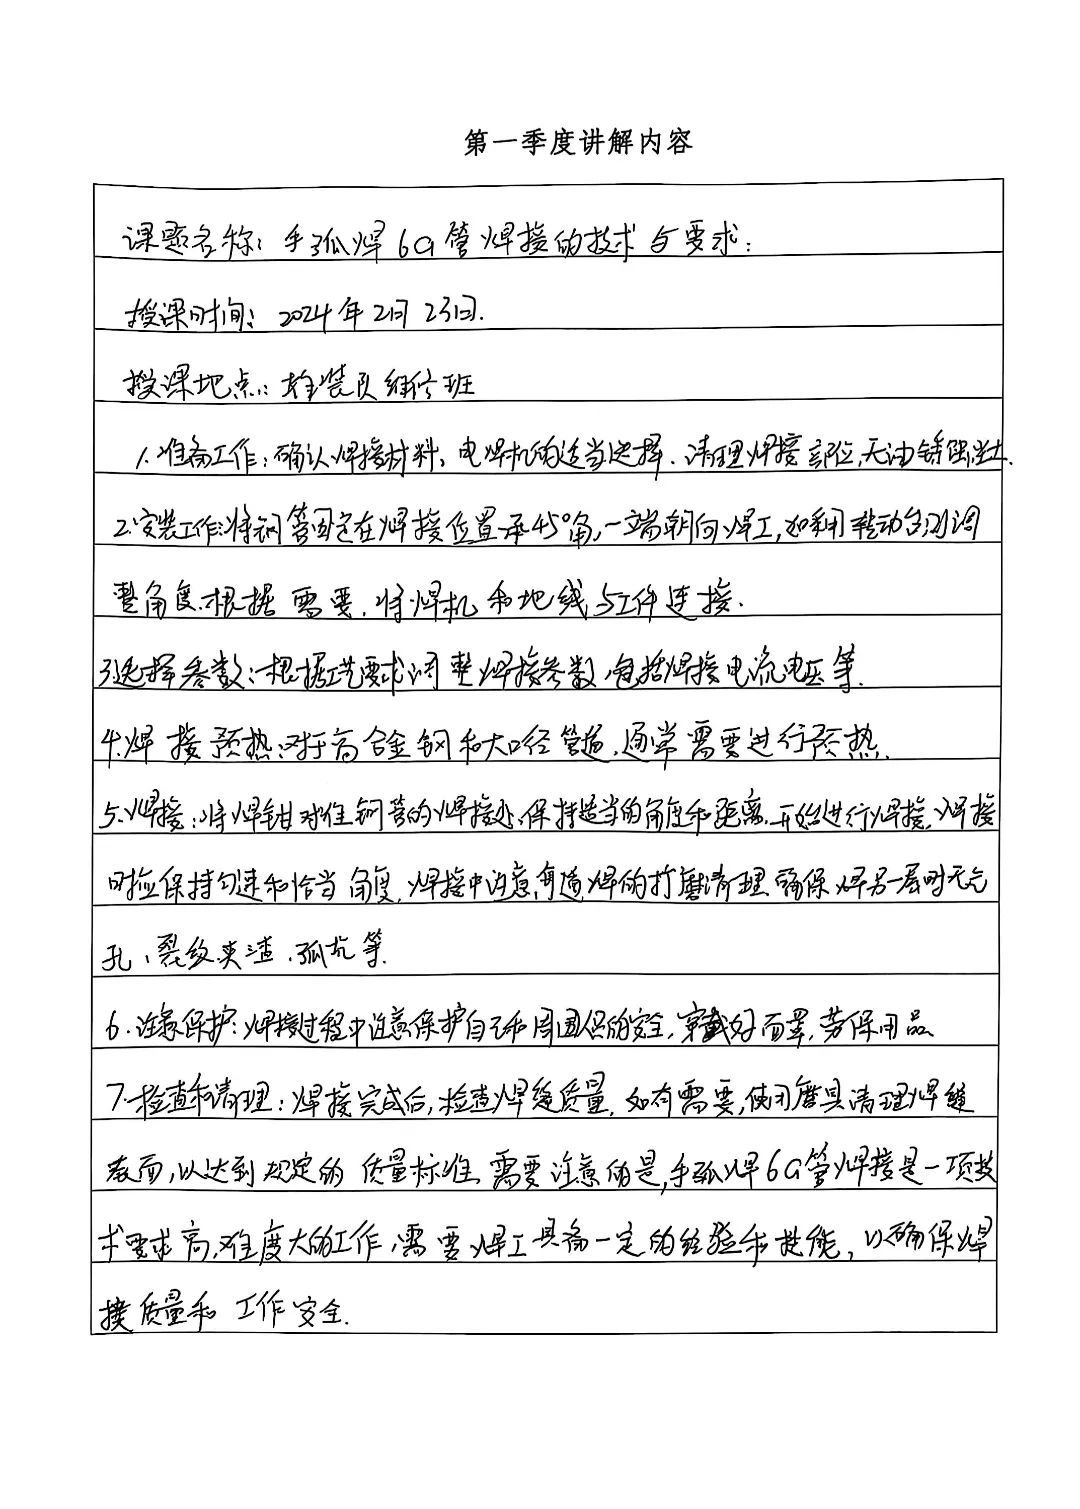 第一季度讲解内容
课题名称：手弧焊6G管焊接的技术与要求：
授课时间：2024年2月23日.
授课地点：拴装队维修班
1.准备工作：确认焊接材料，电焊机的适当选择.清理焊接部位,无油锈
2.安装工作：将钢管固定在焊接位置 45°角,一端朝向焊工,如利用转动台 调
整角度.根据需要,将焊机和地线与工件连接.
3.选择参数：根据工艺要求调整焊接参数,包括焊接电流电压等.
4.焊接预热：对于高合金钢和大口径管道,通常需要进行预热.
5.焊接：将焊钳对准钢管的焊接处,保持适当的角度和距离.开始进行焊接,焊接
时应保持匀速和恰当角度,焊接中注意每道焊的打磨清理,确保焊另一层时无气
孔、裂纹夹渣、弧坑等.
6.注意保护：焊接过程中注意保护自己和周围人的安全,穿戴好面罩,劳保用品
7.检查和清理：焊接完成后,检查焊缝质量,如有需要,使用磨具清理焊缝
表面,以达到规定的质量标准.需要注意的是,手弧焊6G管焊接是一项技
术要求高,难度大的工作,需要焊工具备一定的经验和技能,以确保焊
接质量和工作安全.